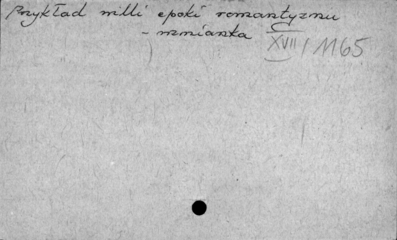 Przykład willi epoki romantyzmu
- wzmianka C
XVII / 1165